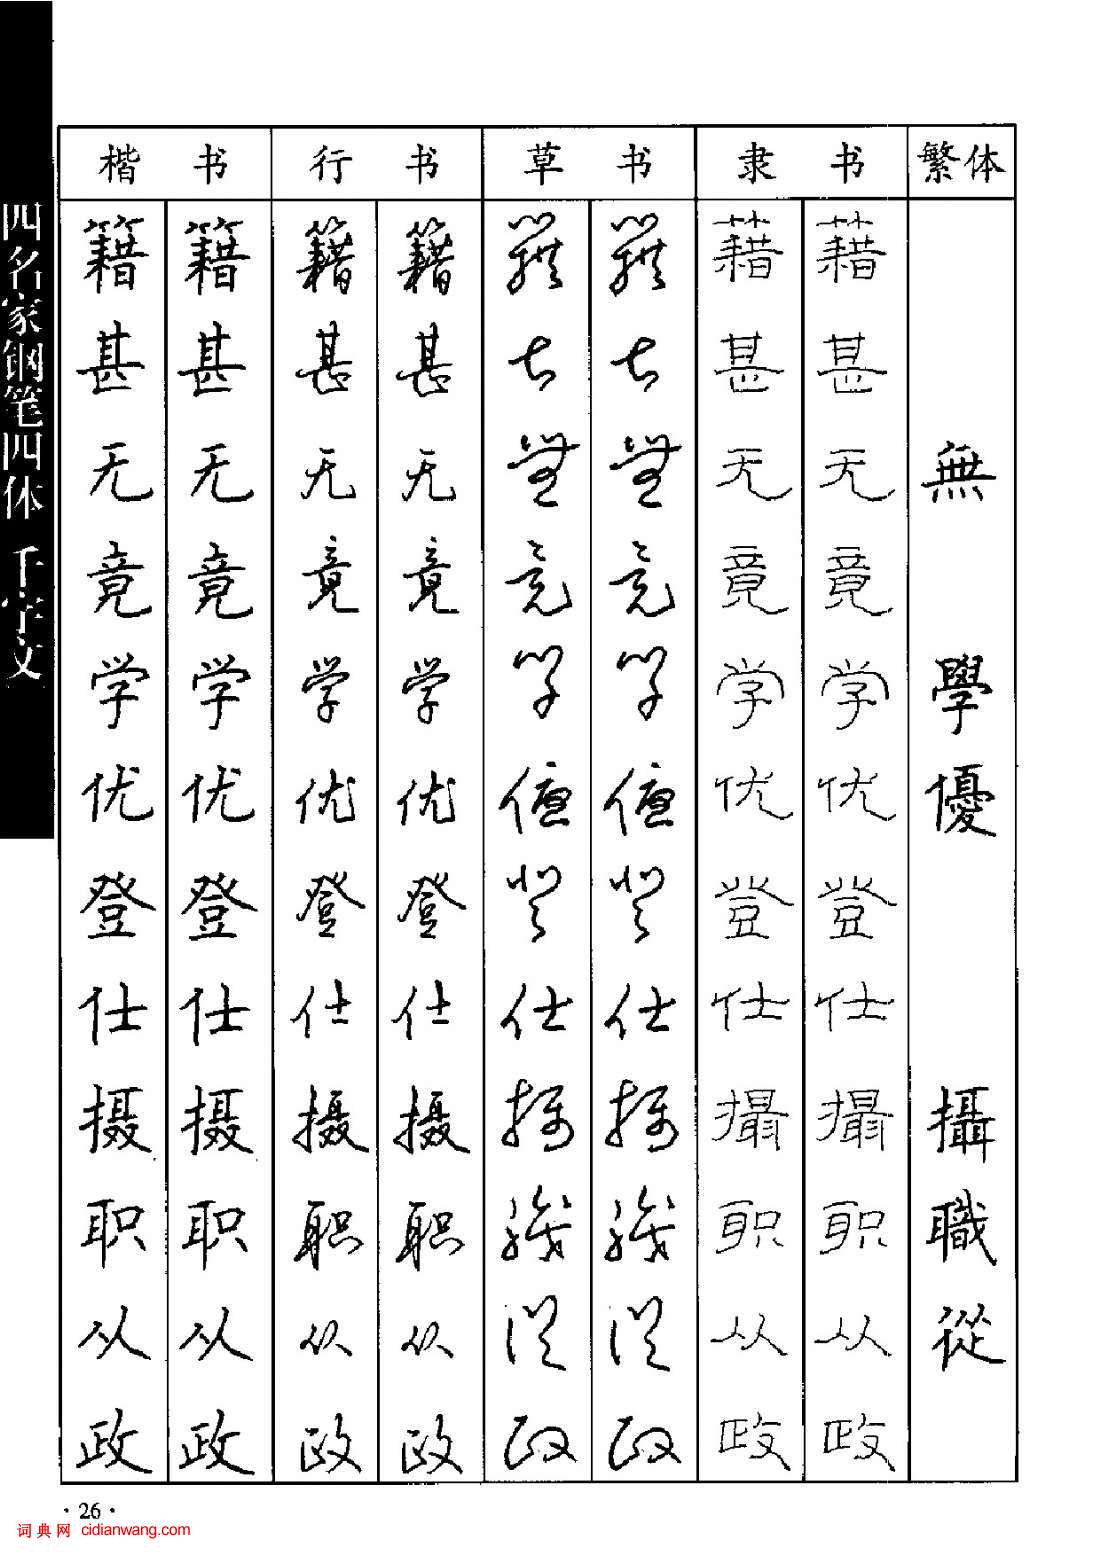 四名家钢笔四体 千字文
楷书 行书 草书 隶书 繁体
籍 籍 籍 籍 籍 籍 藉 藉
甚 甚 甚 甚 甚 甚 甚 甚
无 无 无 无 無 無 无 无 無
竟 竟 竟 竟 竟 竟 竟 竟
学 学 学 学 学 学 学 学 學
优 优 优 优 優 優 优 优 優
登 登 登 登 登 登 登 登
仕 仕 仕 仕 仕 仕 仕 仕
摄 摄 摄 摄 攝 攝 撮 撮 攝
职 职 职 职 職 職 职 职 職
从 从 从 从 從 從 从 从 從
政 政 政 政 政 政 政 政
·26·
词典网 cidianwang.com